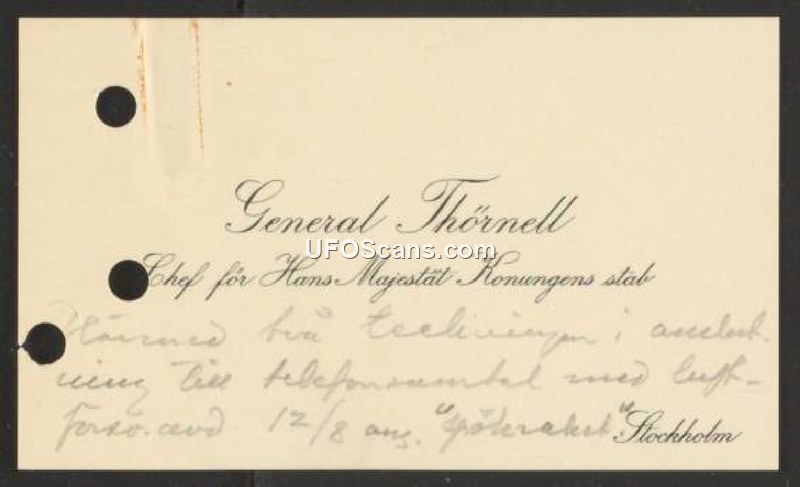 General Thörnell
UFOScans.com
Chef för Hans Majestät Konungens stab
Härmed två teckningar i anslut-
ning till telefonsamtal med luft-
försv.avd. 12/8 ang. "spökraket"
Stockholm